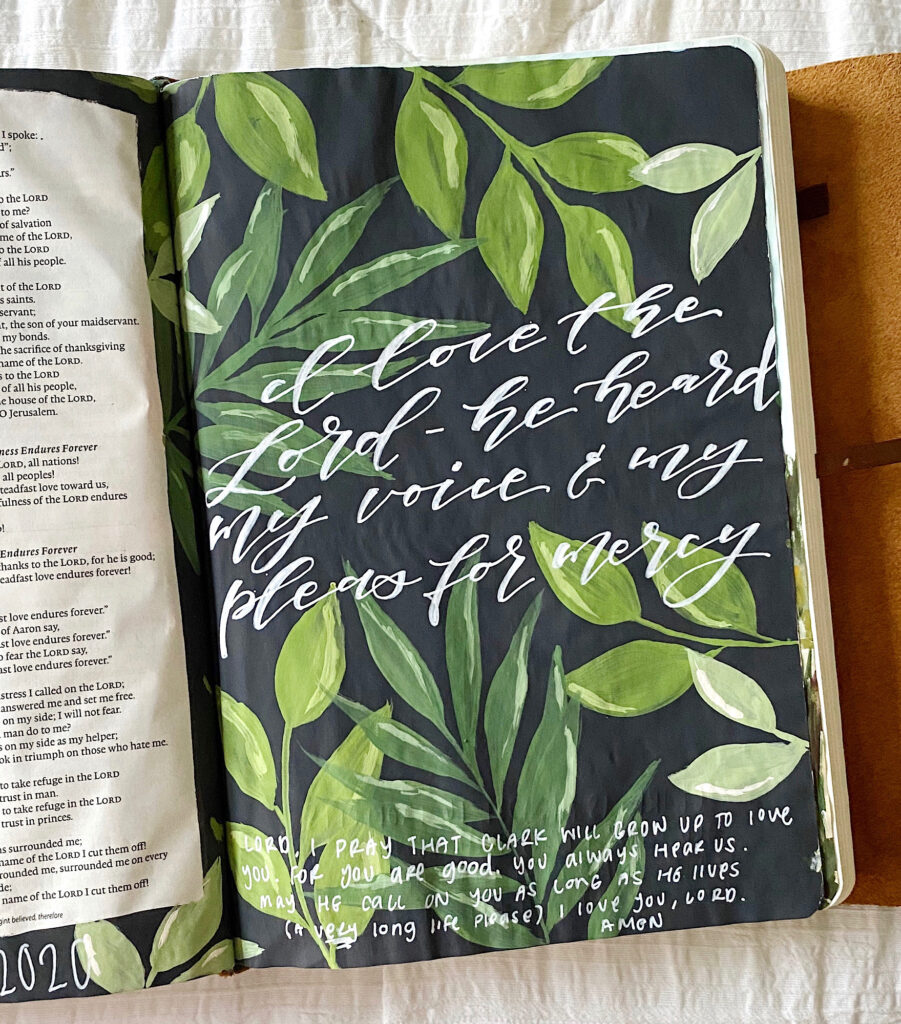 I spoke:
d";
rs."
o the LORD
to me?
of salvation
me of the LORD,
o the LORD
f all his people.
t of the LORD
s saints.
servant;
t, the son of your maidservant.
my bonds.
he sacrifice of thanksgiving
name of the LORD.
s to the LORD
of all his people,
e house of the LORD,
O Jerusalem.
ness Endures Forever
LORD, all nations!
all peoples!
teadfast love toward us,
fulness of the LORD endures
!
Endures Forever
thanks to the LORD, for he is good;
eadfast love endures forever!
st love endures forever."
of Aaron say,
ast love endures forever."
o fear the LORD say,
ast love endures forever."
istress I called on the LORD;
answered me and set me free.
on my side; I will not fear.
man do to me?
s on my side as my helper;
ok in triumph on those who hate me.
to take refuge in the LORD
trust in man.
to take refuge in the LORD
trust in princes.
ns surrounded me;
name of the LORD I cut them off!
rounded me, surrounded me on every
de;
name of the LORD I cut them off!
gint believed, therefore
2020
I love the
Lord - he heard
my voice & my
pleas for mercy
LORD, I PRAY THAT CLARK WILL GROW UP TO LOVE
YOU, FOR YOU ARE GOOD. YOU ALWAYS HEAR US.
MAY HE CALL ON YOU AS LONG AS HE LIVES
(A VERY LONG LIFE PLEASE) I LOVE YOU, LORD.
AMEN